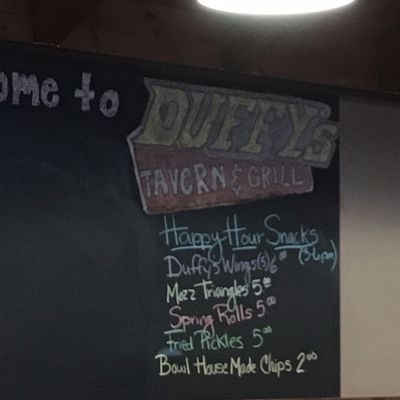 ome to
DUFFY's
TAVERN & GRILL
Happy Hour Snacks
(3-6pm)
Duffy's Wings(5) 6.00
Mozz Triangles 5.00
Spring Rolls 5.00
Fried Pickles 5.00
Bowl House Made Chips 2.00